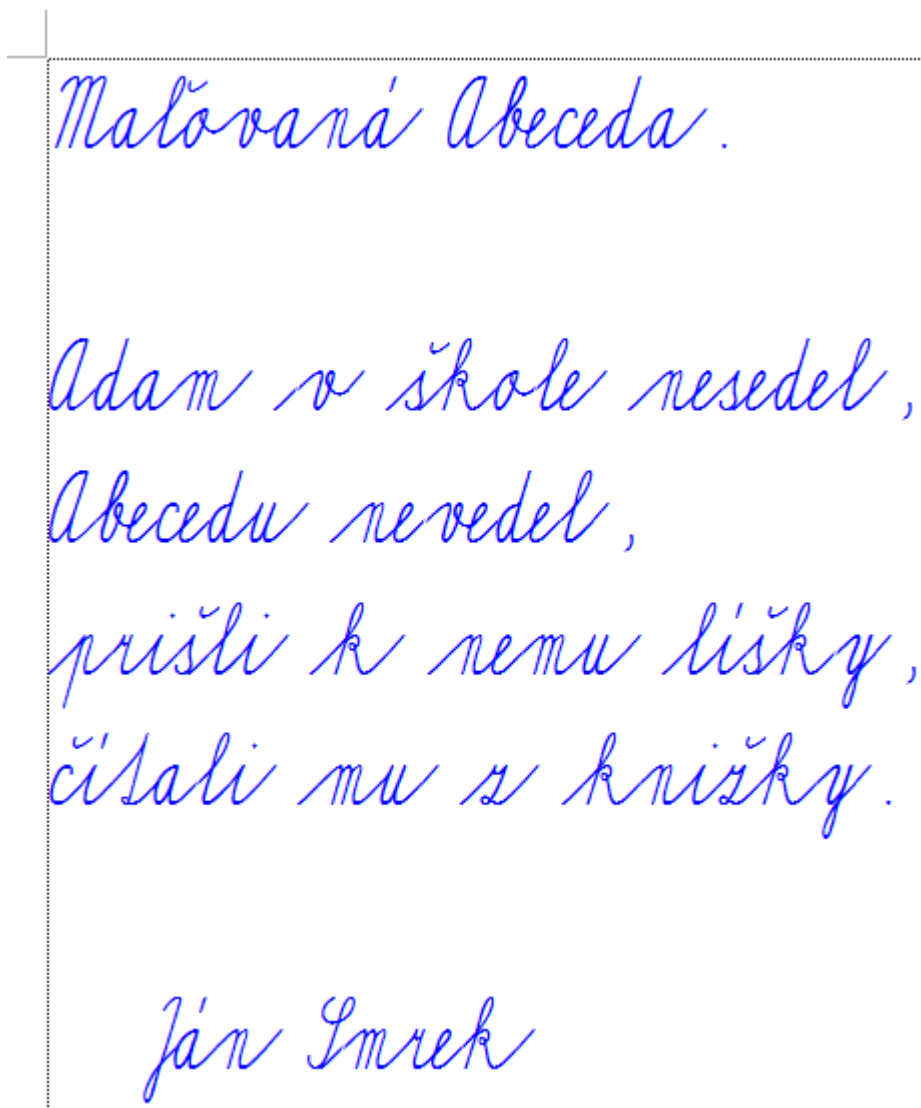 Maľovaná Abeceda.
Adam v škole nesedel,
Abecedu nevedel,
prišli k nemu líšky,
čítali mu z knižky.
Ján Smrek